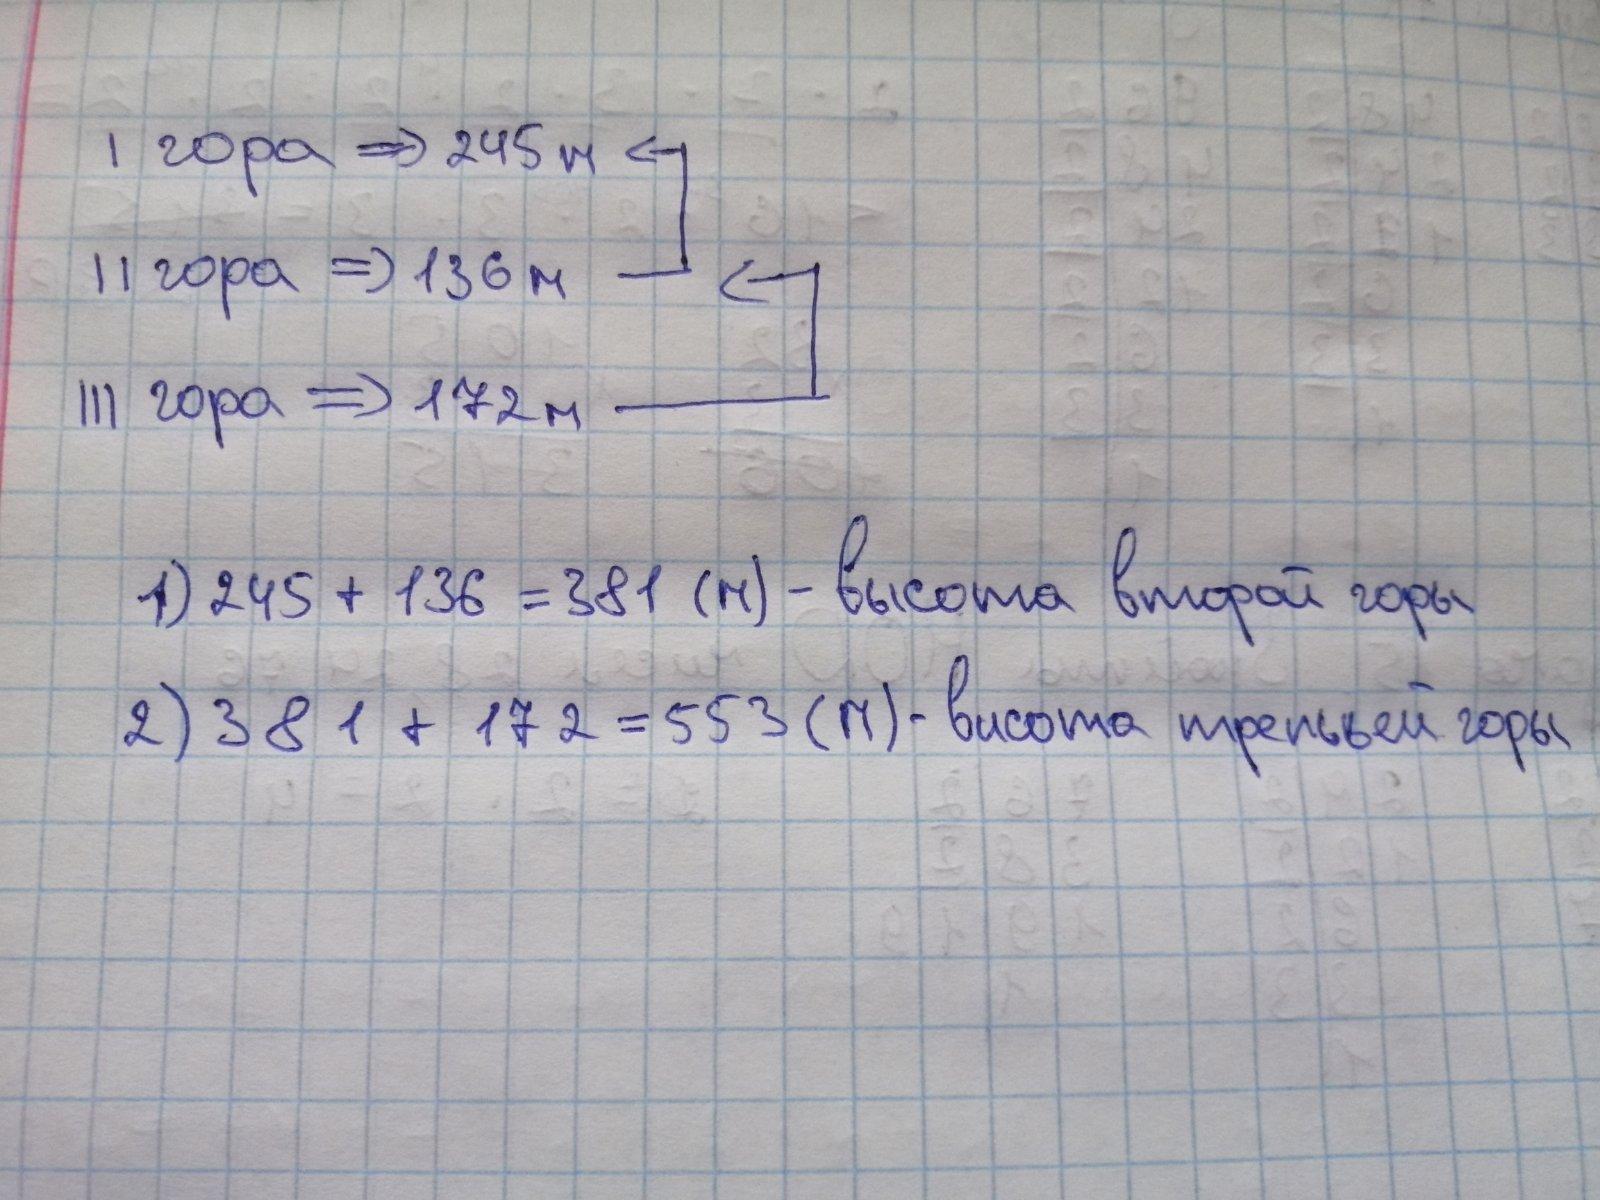 I гора => 245м
II гора => 136м
III гора => 172м
1) 245 + 136 = 381 (м) - высота второй горы
2) 381 + 172 = 553 (м) - висота третьей горы